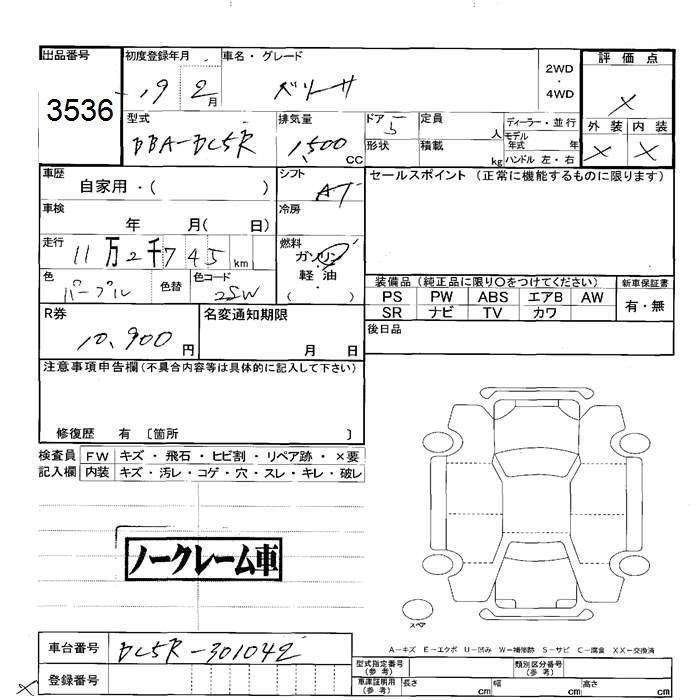 出品番号 初度登録年月 車名・グレード 2WD 評価点
3536 19 2月 ベリーサ ・ 4WD ×
型式 排気量 ドア 定員 ディーラー・並行 外装 内装
DBA-DC5R 1,500 CC 5 人 モデル年式 年 × ×
形状 積載 kg ハンドル 左・右
車歴 シフト セールスポイント (正常に機能するものに限ります)
自家用・( ) AT
車検 冷房
年 月( 日)
走行 燃料
11万2千745km ガソリン
色 色替 色コード 軽・油
パープル 2SW ( )
装備品 (純正品に限り○をつけてください) 新車保証書
PS PW ABS エアB AW 有・無
SR ナビ TV カワ
R券 名変通知期限 後日品
10,900円 月 日
注意事項申告欄(不具合内容等は具体的に記入して下さい)
修復歴 有 〔箇所 〕
検査員 FW キズ・飛石・ヒビ割・リペア跡・×要
記入欄 内装 キズ・汚レ・コゲ・穴・スレ・キレ・破レ
ノークレーム車
スペア
A－キズ E－エクボ U－凹み W－補修跡 S－サビ C－腐食 XX－交換済
車台番号 DC5R-301042
登録番号
型式指定番号(参考) 類別区分番号(参考)
車庫証明用(参考) 長さ cm 幅 cm 高さ cm
×